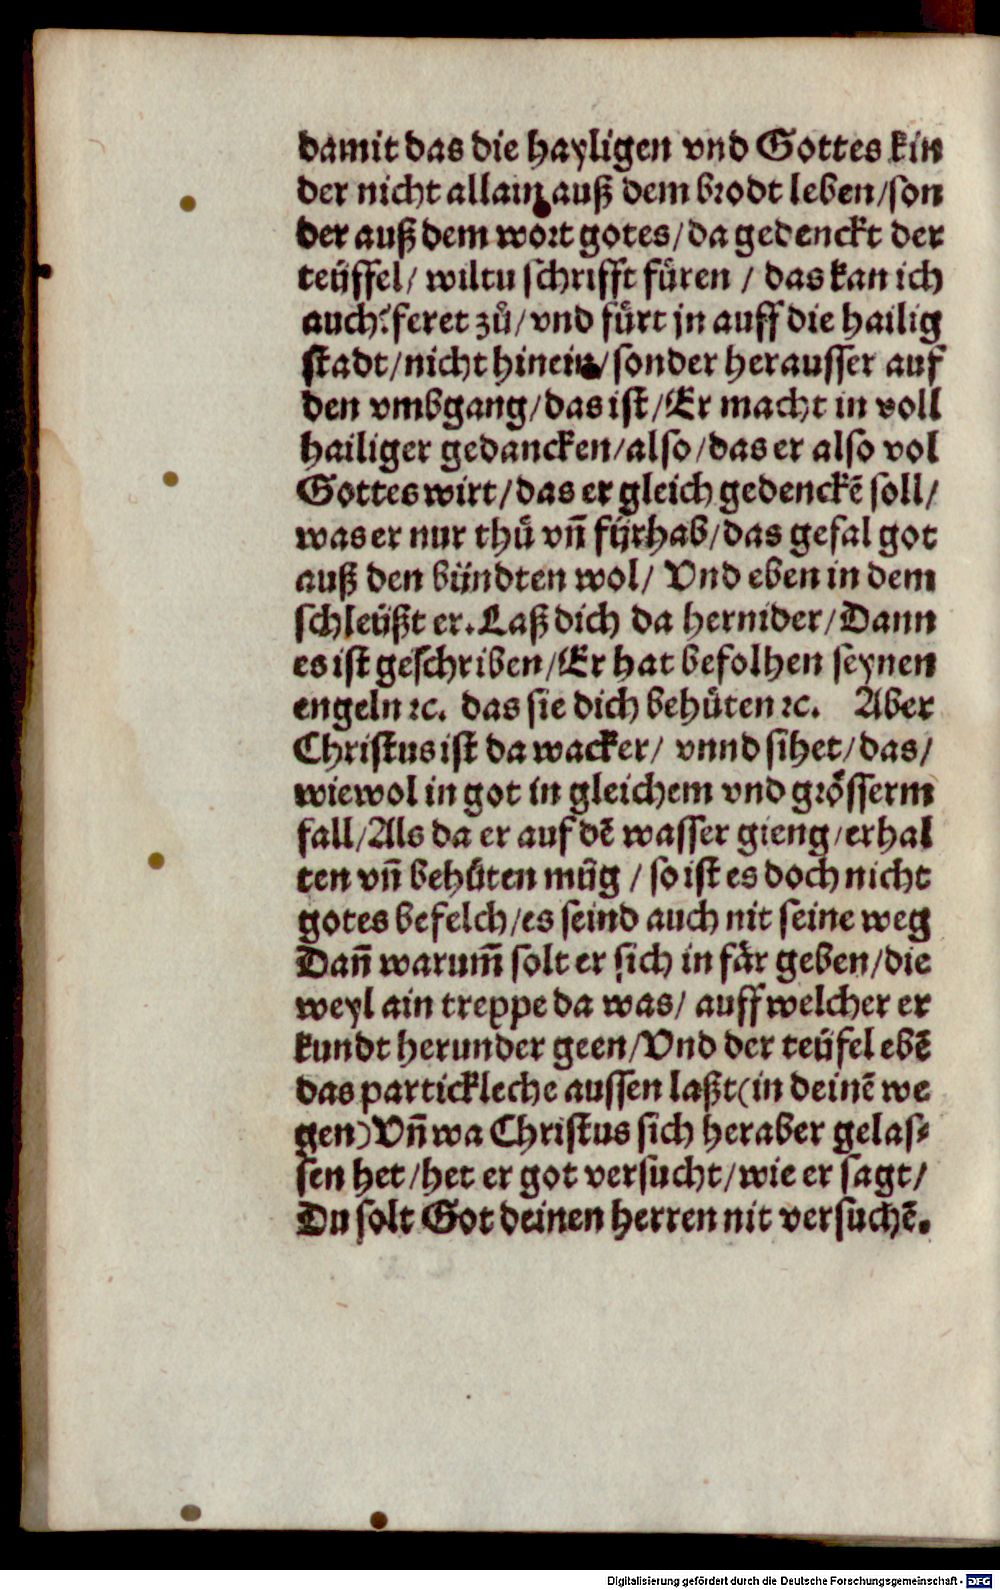 damit das die hayligen vnd Gottes kin
der nicht allain auß dem brodt leben/son
der auß dem wort gotes/da gedenckt der
teüffel/ wiltu schrifft füren / das kan ich
auch/feret zů/vnd fürt jn auff die hailig
stadt/nicht hinein/sonder herausser auf
den vmbgang/das ist/Er macht in voll
hailiger gedancken/also/das er also vol
Gottes wirt/das er gleich gedenckē soll/
was er nur thů vñ fürhab/das gefal got
auß den bündten wol/ Vnd eben in dem
schleüßt er. Laß dich da hernider/Dann
es ist geschriben/Er hat befolhen seynen
engeln ꝛc. das sie dich behüten ꝛc. Aber
Christus ist da wacker/ vnnd sihet/das/
wiewol in got in gleichem vnd grösserm
fall/Als da er auf dē wasser gieng/erhal
ten vñ behüten müg / so ist es doch nicht
gotes befelch/es seind auch nit seine weg
Dañ warum̃ solt er sich in fär geben/die
weyl ain treppe da was/ auff welcher er
kundt herunder geen/Vnd der teüfel ebē
das partickleche aussen laßt(in deinē we
gen)Vñ wa Christus sich heraber gelas⸗
sen het/het er got versucht/wie er sagt/
Du solt Got deinen herren nit versuchē.
Digitalisierung gefördert durch die Deutsche Forschungsgemeinschaft - DFG